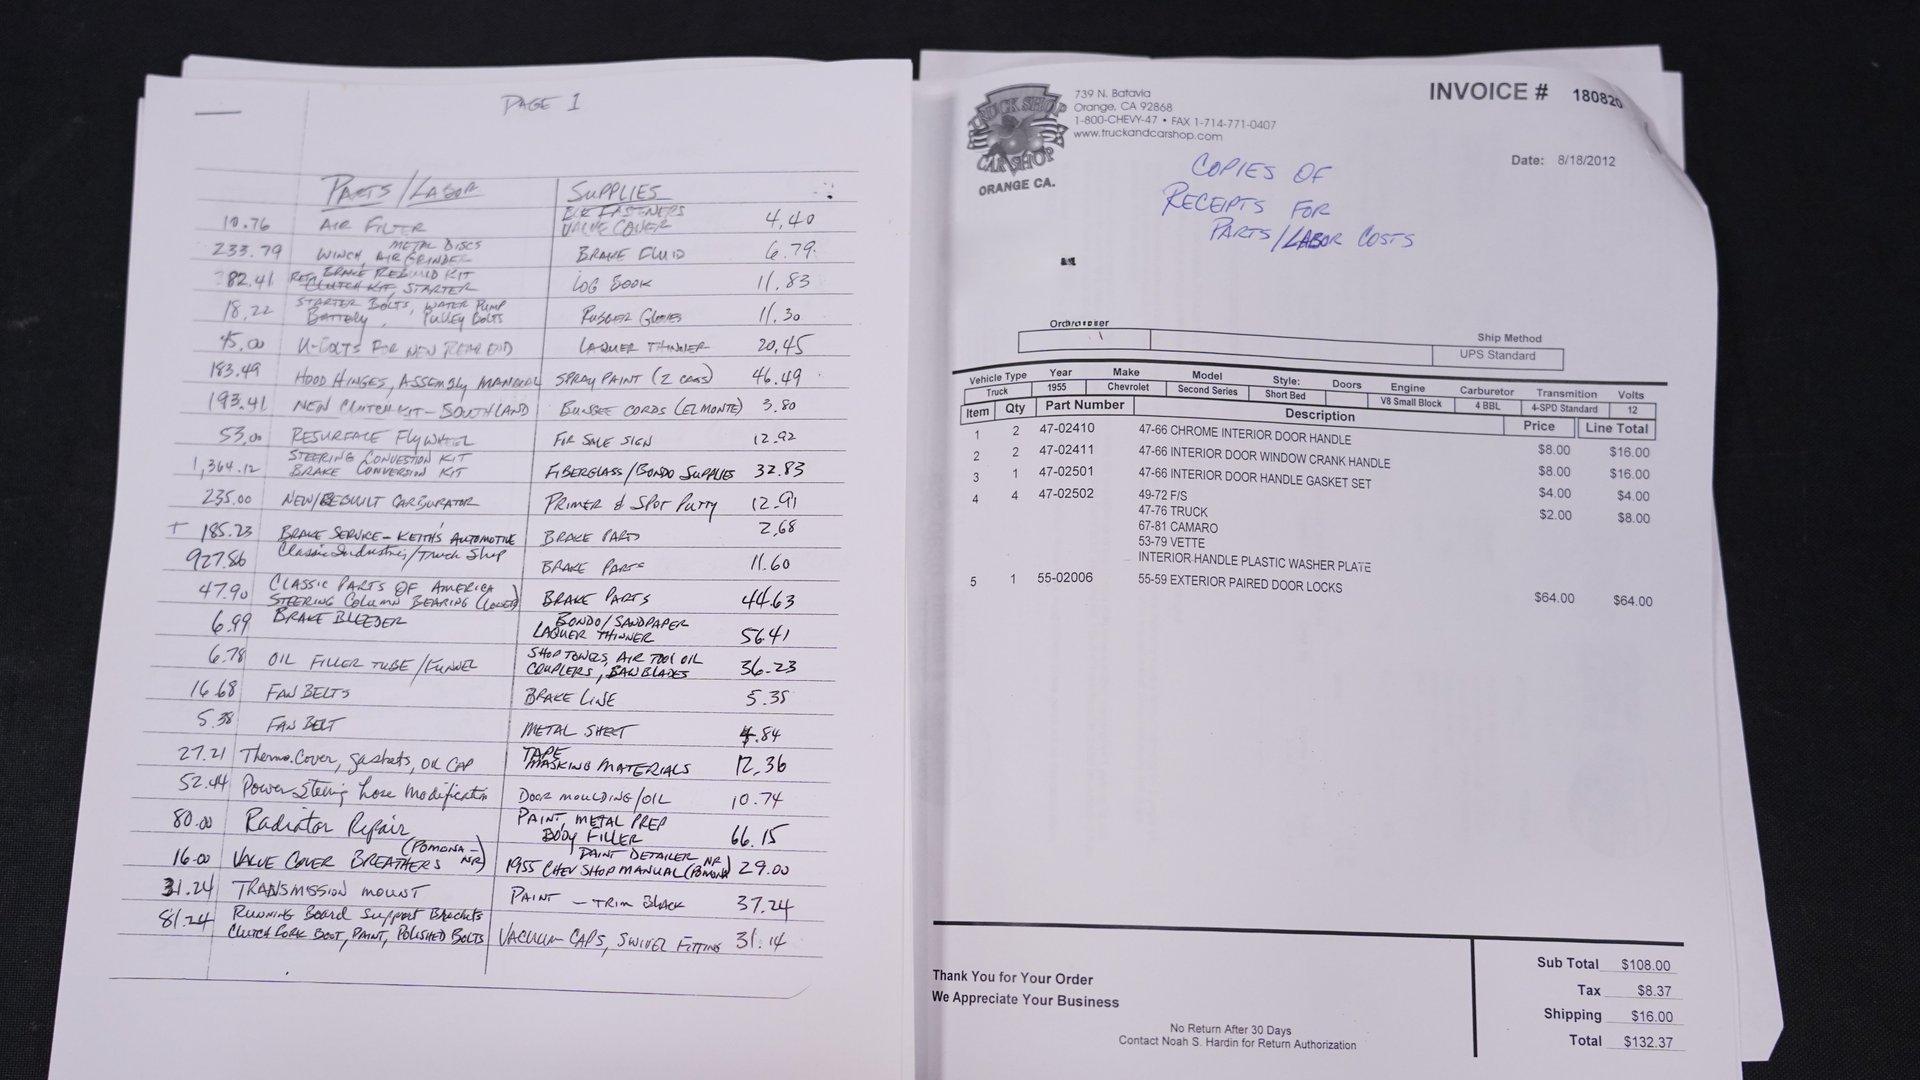 PAGE 1
PARTS/LABOR SUPPLIES
10.76 AIR FILTER FASTENERS VALVE COVER 4.40
233.79 WINCH, AIR GRINDER METAL DISCS BRAKE FLUID 6.79
82.41 BRAKE REBUILD KIT
CLUTCH KIT, STARTER LOG BOOK 11.83
18.22 STARTER BOLTS, WATER PUMP
Battery, PULLEY BOLTS RUBBER GLOVES 11.30
45.00 U-BOLTS FOR NEW REAR END LAQUER THINNER 20.45
183.49 HOOD HINGES, ASSEMBLY MANUAL SPRAY PAINT (2 CANS) 46.49
193.41 NEW CLUTCH KIT - SOUTHLAND BUNGEE CORDS (EL MONTE) 3.80
53.00 RESURFACE FLYWHEEL FOR SALE SIGN 12.92
1,364.12 STEERING CONVESTION KIT
BRAKE CONVERSION KIT FIBERGLASS/BONDO SUPPLIES 32.83
235.00 NEW/REBUILT CARBURATOR PRIMER & SPOT PUTTY 12.91
+ 185.23 BRAKE SERVICE - KEITH'S AUTOMOTIVE BRAKE PARTS 2.68
927.86 Classic Industries/Truck Shop BRAKE PARTS 11.60
47.90 CLASSIC PARTS OF AMERICA
STEERING COLUMN BEARING (LOWER) BRAKE PARTS 44.63
6.99 BRAKE BLEEDER BONDO/SANDPAPER
LAQUER THINNER 56.41
6.78 OIL FILLER TUBE/FUNNEL SHOP TOWELS, AIR TOOL OIL
COUPLERS, SAW BLADES 36.23
16.68 FAN BELTS BRAKE LINE 5.38
5.38 FAN BELT METAL SHEET 4.84
27.21 Thermo. Cover, gaskets, OIL CAP TAPE
MASKING MATERIALS 12.36
52.44 Power Steering hose modification DOOR MOULDING/OIL 10.74
80.00 Radiator Repair PAINT, METAL PREP
BODY FILLER 66.15
16.00 VALVE COVER BREATHERS (POMONA - NR) PAINT DETAILER NR
1955 CHEV SHOP MANUAL (POMONA) 29.00
31.24 TRANSMISSION MOUNT PAINT - TRIM BLACK 37.24
81.24 RUNNING Board Support Brackets
CLUTCH FORK BOOT, PAINT, POLISHED BOLTS VACUUM CAPS, SWIVEL FITTING 31.14
TRUCK SHOP
CAR SHOP
ORANGE CA.
739 N. Batavia
Orange, CA 92868
1-800-CHEVY-47 • FAX 1-714-771-0407
www.truckandcarshop.com
INVOICE # 180820
Date: 8/18/2012
COPIES OF
RECEIPTS FOR
PARTS/LABOR COSTS
Ship Method
UPS Standard
Vehicle Type Year Make Model Style: Doors Engine Carburetor Transmition Volts
Truck 1955 Chevrolet Second Series Short Bed V8 Small Block 4 BBL 4-SPD Standard 12
Item Qty Part Number Description Price Line Total
1 2 47-02410 47-66 CHROME INTERIOR DOOR HANDLE $8.00 $16.00
2 2 47-02411 47-66 INTERIOR DOOR WINDOW CRANK HANDLE $8.00 $16.00
3 1 47-02501 47-66 INTERIOR DOOR HANDLE GASKET SET $4.00 $4.00
4 4 47-02502 49-72 F/S $2.00 $8.00
47-76 TRUCK
67-81 CAMARO
53-79 VETTE
INTERIOR HANDLE PLASTIC WASHER PLATE
5 1 55-02006 55-59 EXTERIOR PAIRED DOOR LOCKS $64.00 $64.00
Thank You for Your Order
We Appreciate Your Business
No Return After 30 Days
Contact Noah S. Hardin for Return Authorization
Sub Total $108.00
Tax $8.37
Shipping $16.00
Total $132.37